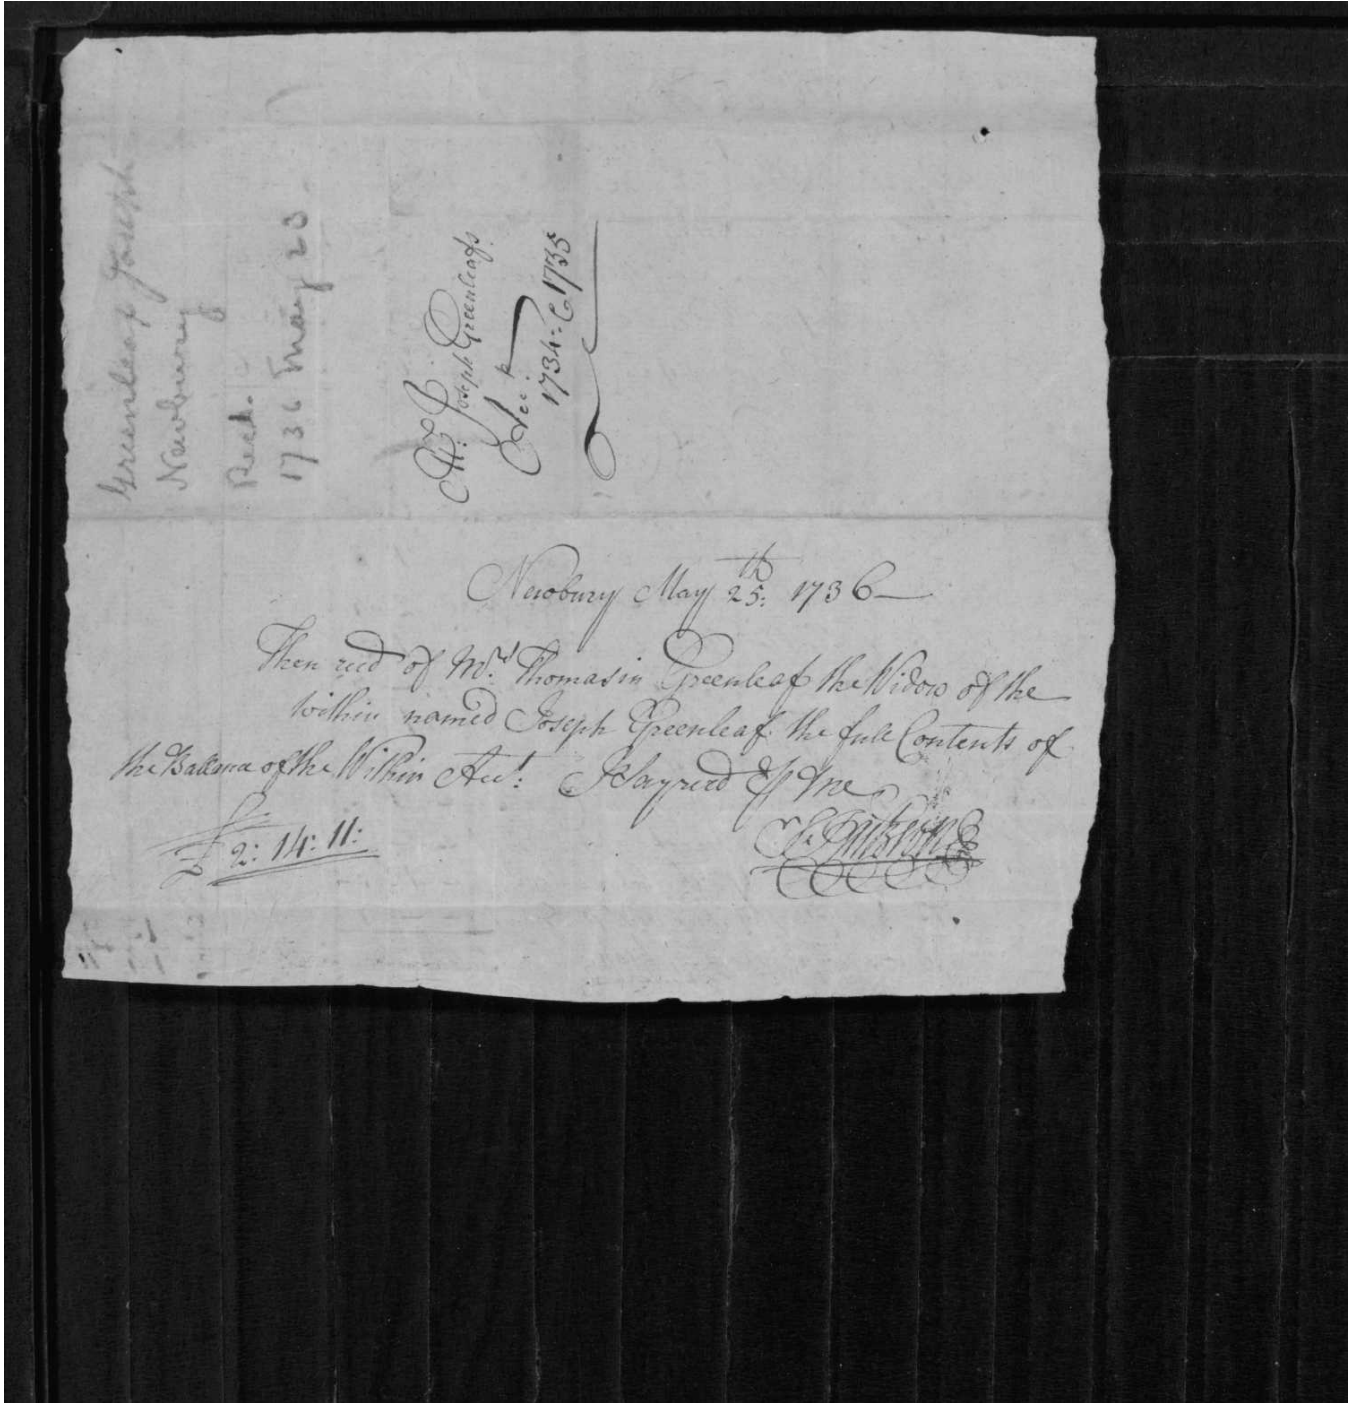 Greenleaf Joseph
Newbury
Recd.
1736 May 23
Mr: Joseph Greenleafs
Acc:t
1734: & 1735
Newbury May 25:th 1736
Then recd of Mrs: Thomasin Greenleaf the Widow of the
within named Joseph Greenleaf the full Contents of
the Ballance of the Within Acct: I Say recd me
£ 2: 14: 11: